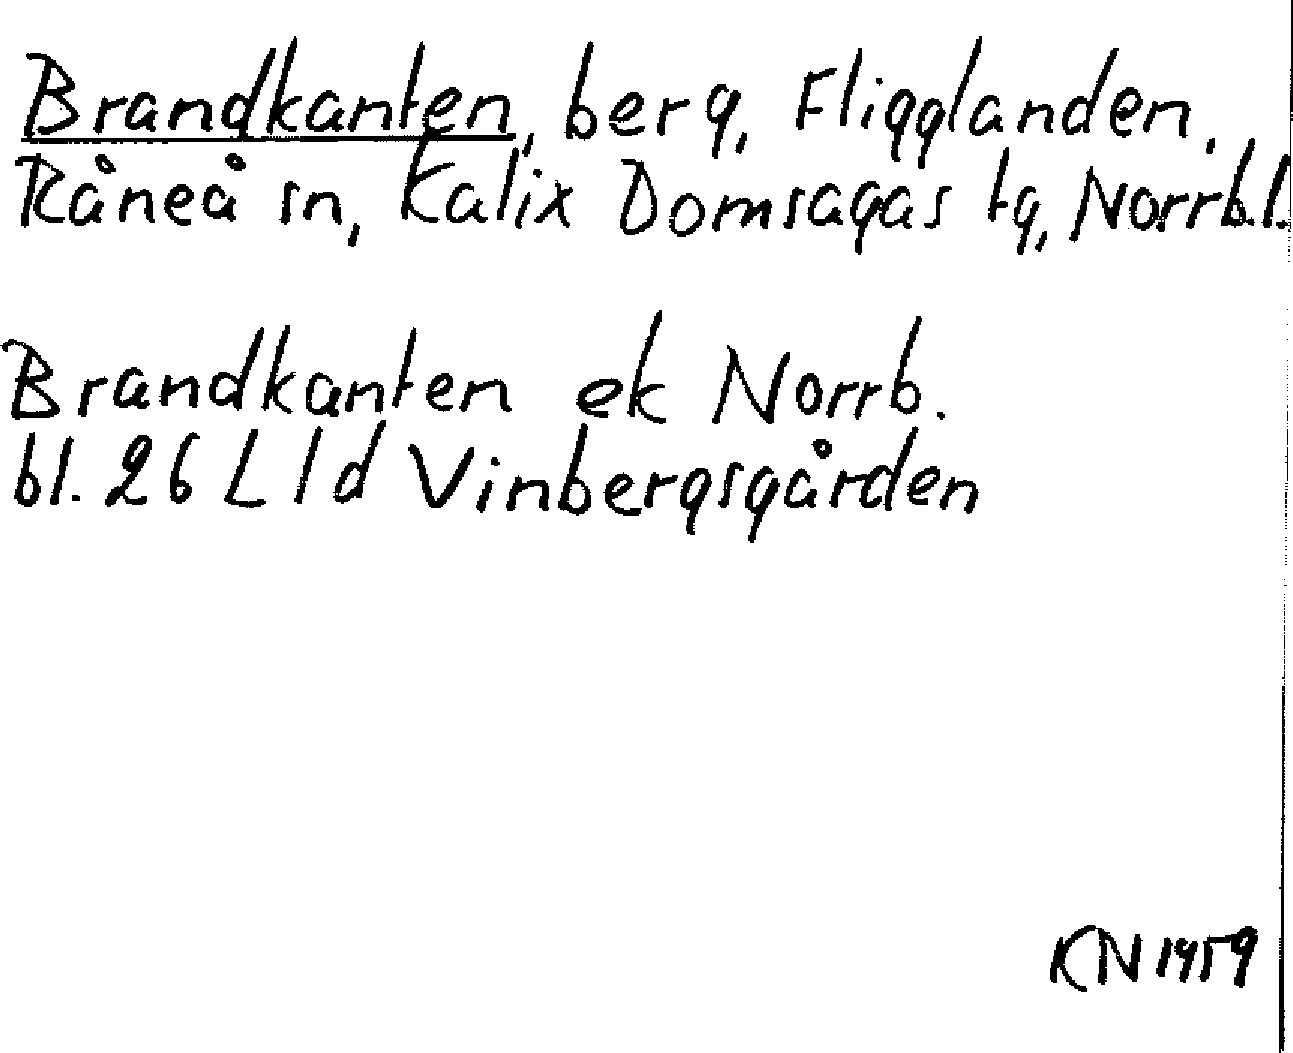 Brandkanten, berg, Fligglanden.
Råneå sn, Kalix Domsagas tg, Norrb.l.
Brandkanten ek Norrb.
bl. 26 L 1d Vinbergsgården
KN 1959